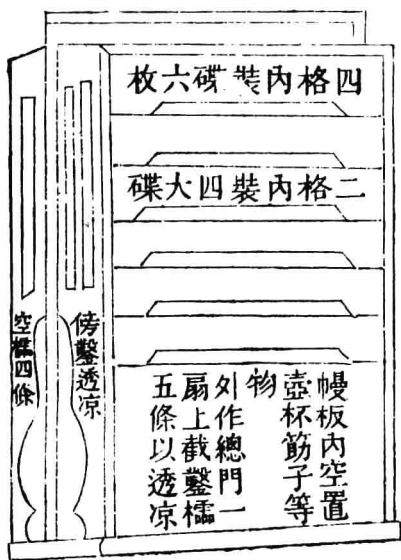 四格內裝碟六枚
二格內裝四大碟
幔板內空置
壺杯筯子等
物
外作總門一
扇上截鑿檽
五條以透凉
傍鑿透凉
空檽四條